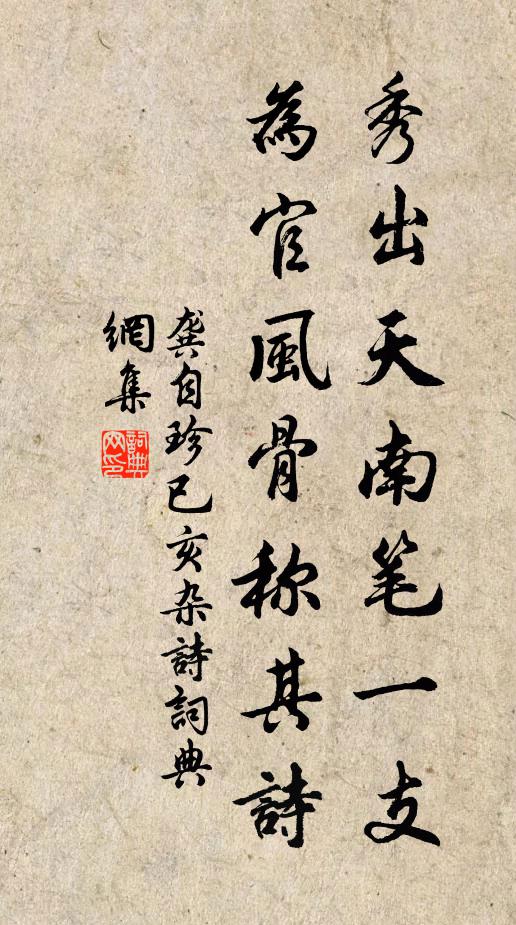 秀出天南笔一支
為官風骨称其詩
龔自珍己亥杂詩詞典
網集
詞典網印